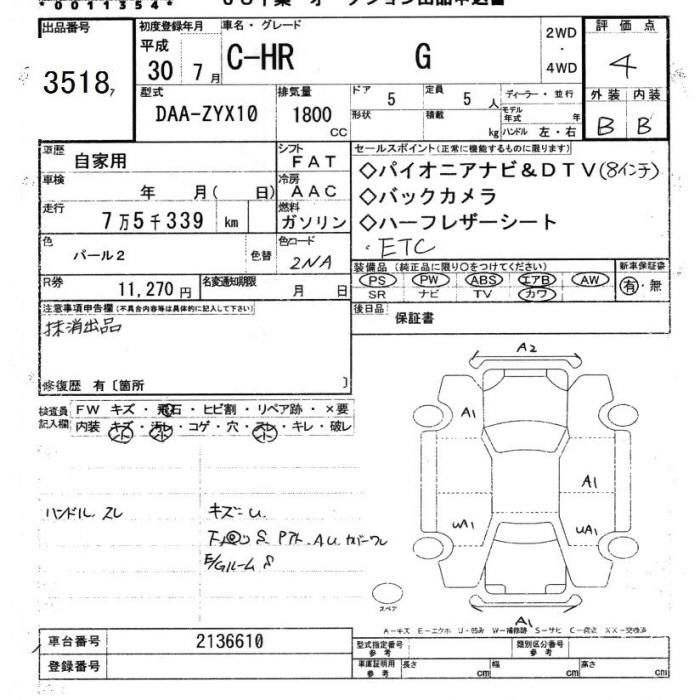 *0011354*
出品番号
3518
初度登録年月
平成
30 7月
車名・グレード
C-HR G
2WD
・
4WD
評価点
4
型式
DAA-ZYX10
排気量
1800 CC
ドア
5
定員
5人
ディーラー・並行
形状
積載
kg
モデル年式 年
ハンドル 左・右
外装 内装
B B
車歴
自家用
シフト
FAT
車検
年 月( 日)
冷房
AAC
走行
7万5千339 km
燃料
ガソリン
色
パール2
色替
色コード
2NA
セールスポイント(正常に機能するものに限ります)
◇パイオニアナビ&DTV(8インチ)
◇バックカメラ
◇ハーフレザーシート
・ETC
R券
11,270円
名変通知期限
月 日
装備品(純正品に限り○をつけてください)
PS PW ABS エアB AW
SR ナビ TV カワ
新車保証書
有・無
注意事項申告欄(不具合内容等は具体的に記入して下さい)
抹消出品
後日品
保証書
修復歴 有〔箇所 〕
検査員記入欄
FW キズ・飛石・ヒビ割・リペア跡・×要
内装 キズ・汚レ・コゲ・穴・スレ・キレ・破レ
ハンドル スレ
キズU
E/Gルーム S
A2
A1
A1
UA1
UA1
A1
スペア
A-キズ E-エクボ U-凹み W-補修跡 S-サビ C-腐食 XX-交換済
車台番号
2136610
登録番号
型式指定番号
参考
類別区分番号
参考
車庫証明用
参考
長さ cm
幅 cm
高さ cm